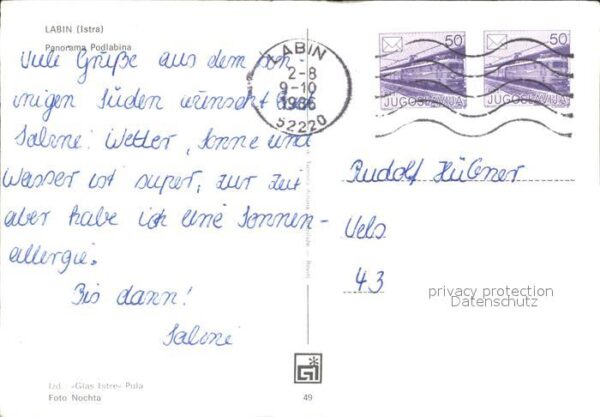 LABIN (Istra)
Panorama Podlabina
Viele Grüße aus dem son-
nigen Süden wünscht Euch
Sabine! Wetter, Sonne und
Wasser ist super, zur Zeit
aber habe ich eine Sonnen-
allergie.
Bis dann!
Sabine
Izd.: »Glas Istre« Pula
Foto Nochta
LABIN
2-8
9-10
1986
52220
50
JUGOSLAVIJA
50
JUGOSLAVIJA
Rudolf Hübner
Wels
43
privacy protection
Datenschutz
GI
49